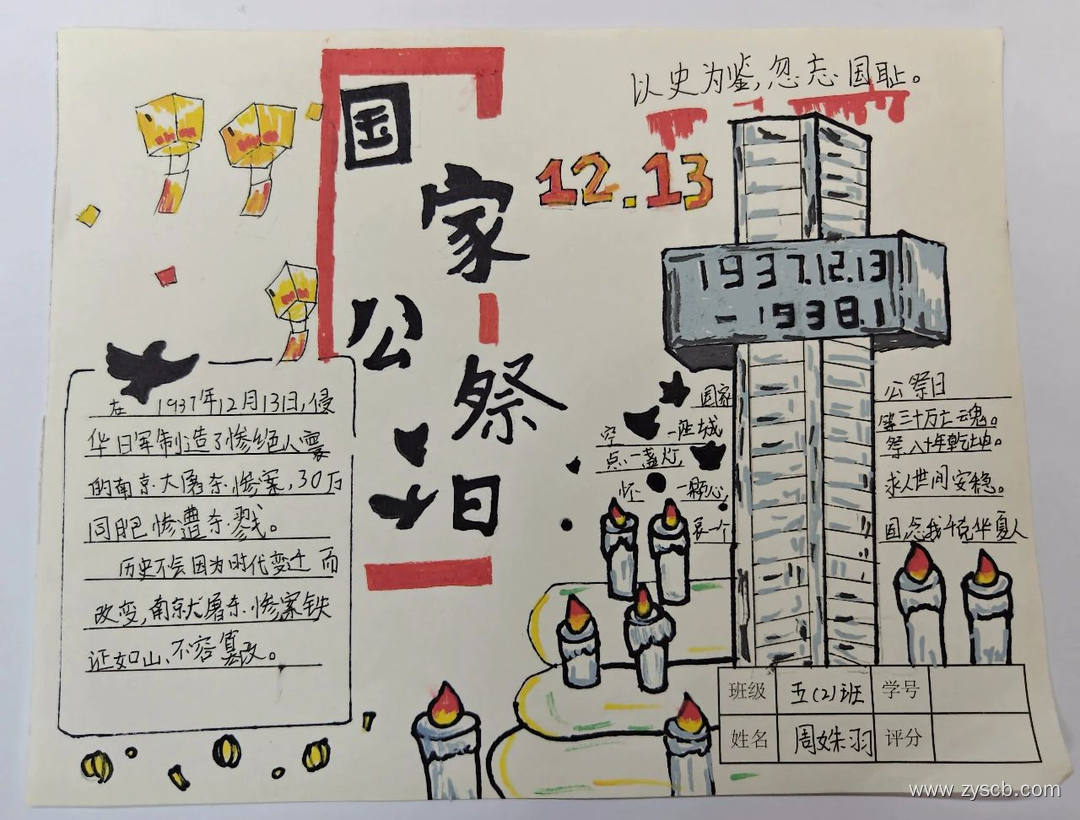 以史为鉴,忽志国耻。
国家公祭日
12.13
1937.12.13
-1938.1
在 1937年12月13日,侵
华日军制造了惨绝人寰
的南京大屠杀惨案,30万
同胞惨遭杀戮。
历史不会因为时代变迁而
改变,南京大屠杀惨案铁
证如山、不容篡改。
国家 公祭日
空 一座城 第三十万亡魂。
点一盏灯, 祭八十年乾坤。
怀 一颗心, 求人世间安稳。
哀一个 国念我千克华夏人
班级 五(2)班 学号
姓名 周姝羽 评分
www.zyscb.com